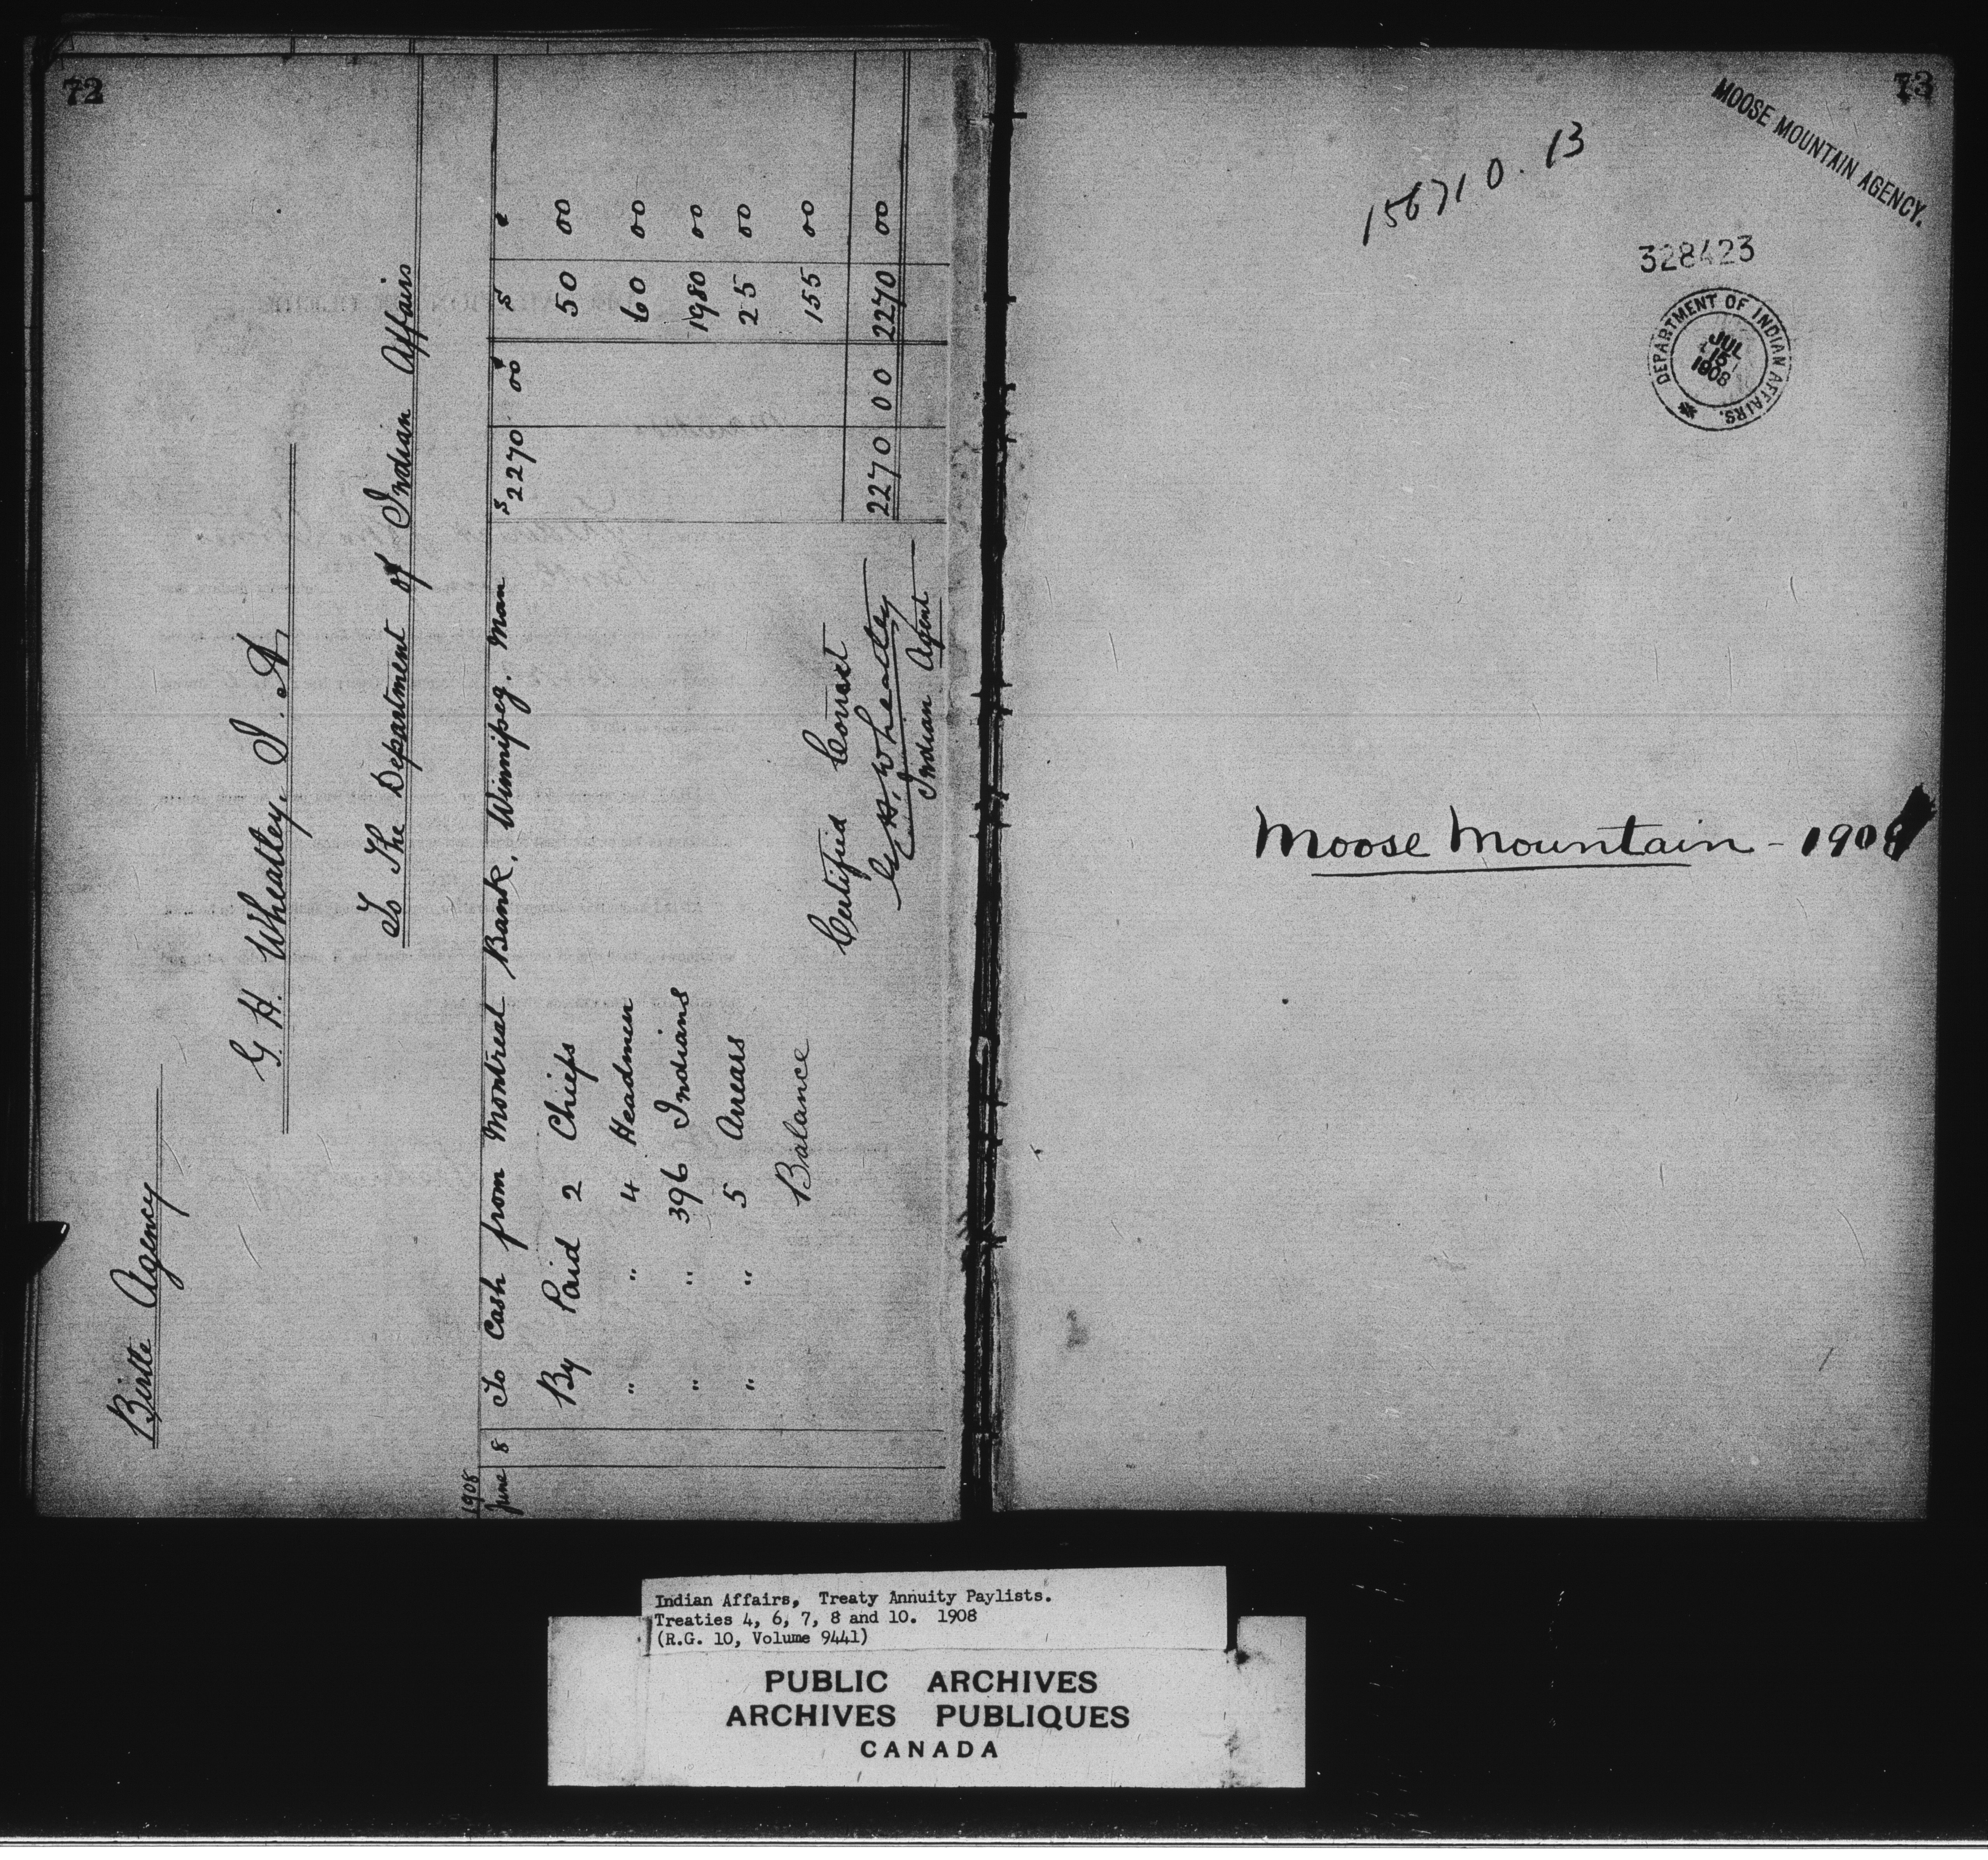 72
Birtle Agency
G. H. Wheatley, I. A
To The Department of Indian Affairs
1908 $ ¢ $ ¢
June 8 To Cash from Montreal Bank, Winnipeg. Man 2270 00
By Paid 2 Chiefs 50 00
" " 4 Headmen 60 00
" " 396 Indians 1980 00
" " 5 Arrears 25 00
Balance 155 00
2270 00 2270 00
Certified Correct
G. H. Wheatley
Indian Agent
73
MOOSE MOUNTAIN AGENCY.
156710.13
328423
DEPARTMENT OF INDIAN AFFAIRS.
JUL
15
1908
Moose Mountain - 1908
Indian Affairs, Treaty Annuity Paylists.
Treaties 4, 6, 7, 8 and 10. 1908
(R.G. 10, Volume 9441)
PUBLIC ARCHIVES
ARCHIVES PUBLIQUES
CANADA